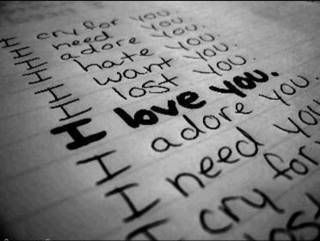 I cry for you.
I need you.
I adore you.
I hate you.
I want you.
I lost you.
I love you.
I adore you.
I need you
I cry for
lost